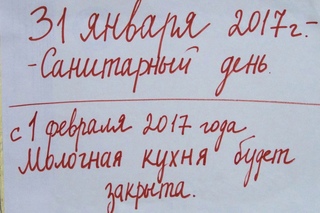 31 января 2017г.-
-Санитарный день.
с 1 февраля 2017 года
Молочная кухня будет
закрыта.